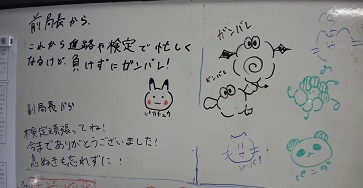 前局長から、
これから進路や検定で忙しく
なるけど、負けずにガンバレ！
ガンバレ！
ガンバレ！
ピカチュウ
副局長から
検定頑張ってね！
今までありがとうございました！
息ぬきも忘れずに！
パンダ